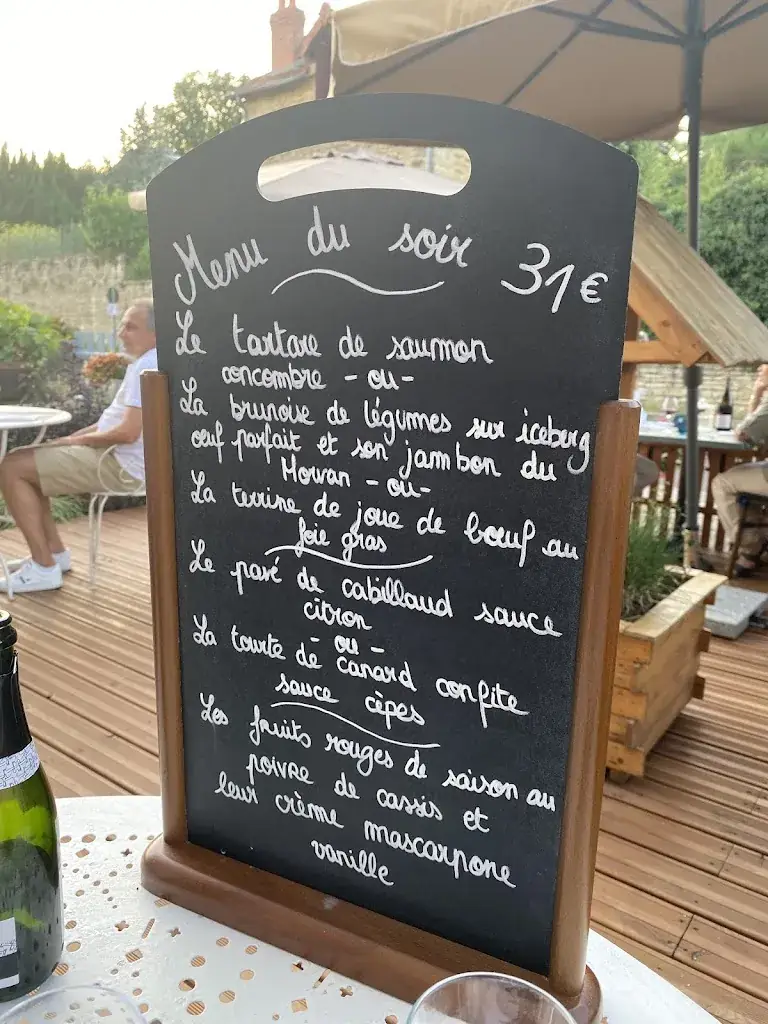 Menu du soir 31€
Le tartare de saumon
concombre - ou -
La brunoise de légumes sur iceberg
œuf parfait et son jambon du
Morvan - ou -
La terrine de joue de bœuf au
foie gras
Le pavé de cabillaud sauce
citron
- ou -
La tourte de canard confite
sauce cèpes
Les fruits rouges de saison au
poivre de cassis et
leur crème mascarpone
vanille